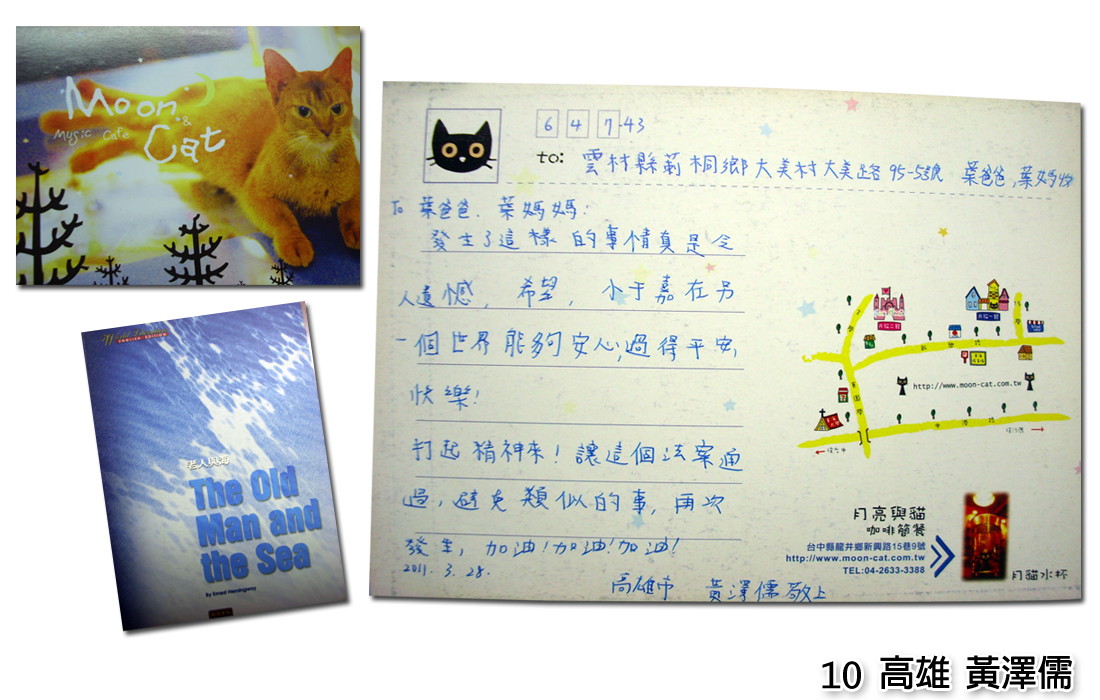 Moon
&
Music Cafe
Cat
World Literature
ENGLISH EDITION
老人與海
The Old
Man and
the Sea
by Ernest Hemingway
6 4 7-43
to: 雲林縣莿桐鄉大美村大美路95-5號 葉爸爸,葉媽媽收
To 葉爸爸、葉媽媽:
發生了這樣的事情真是令
人遺憾,希望,小于嘉在另
一個世界能夠安心,過得平安,
快樂!
打起精神來!讓這個法案通
過,避免類似的事,再次
發生,加油!加油!加油!
2011. 3. 28.
高雄市 黃澤儒敬上
http://www.moon-cat.com.tw
月亮與貓
咖啡簡餐
台中縣龍井鄉新興路15巷9號
http://www.moon-cat.com.tw
TEL:04-2633-3388
月貓水杯
10 高雄 黃澤儒